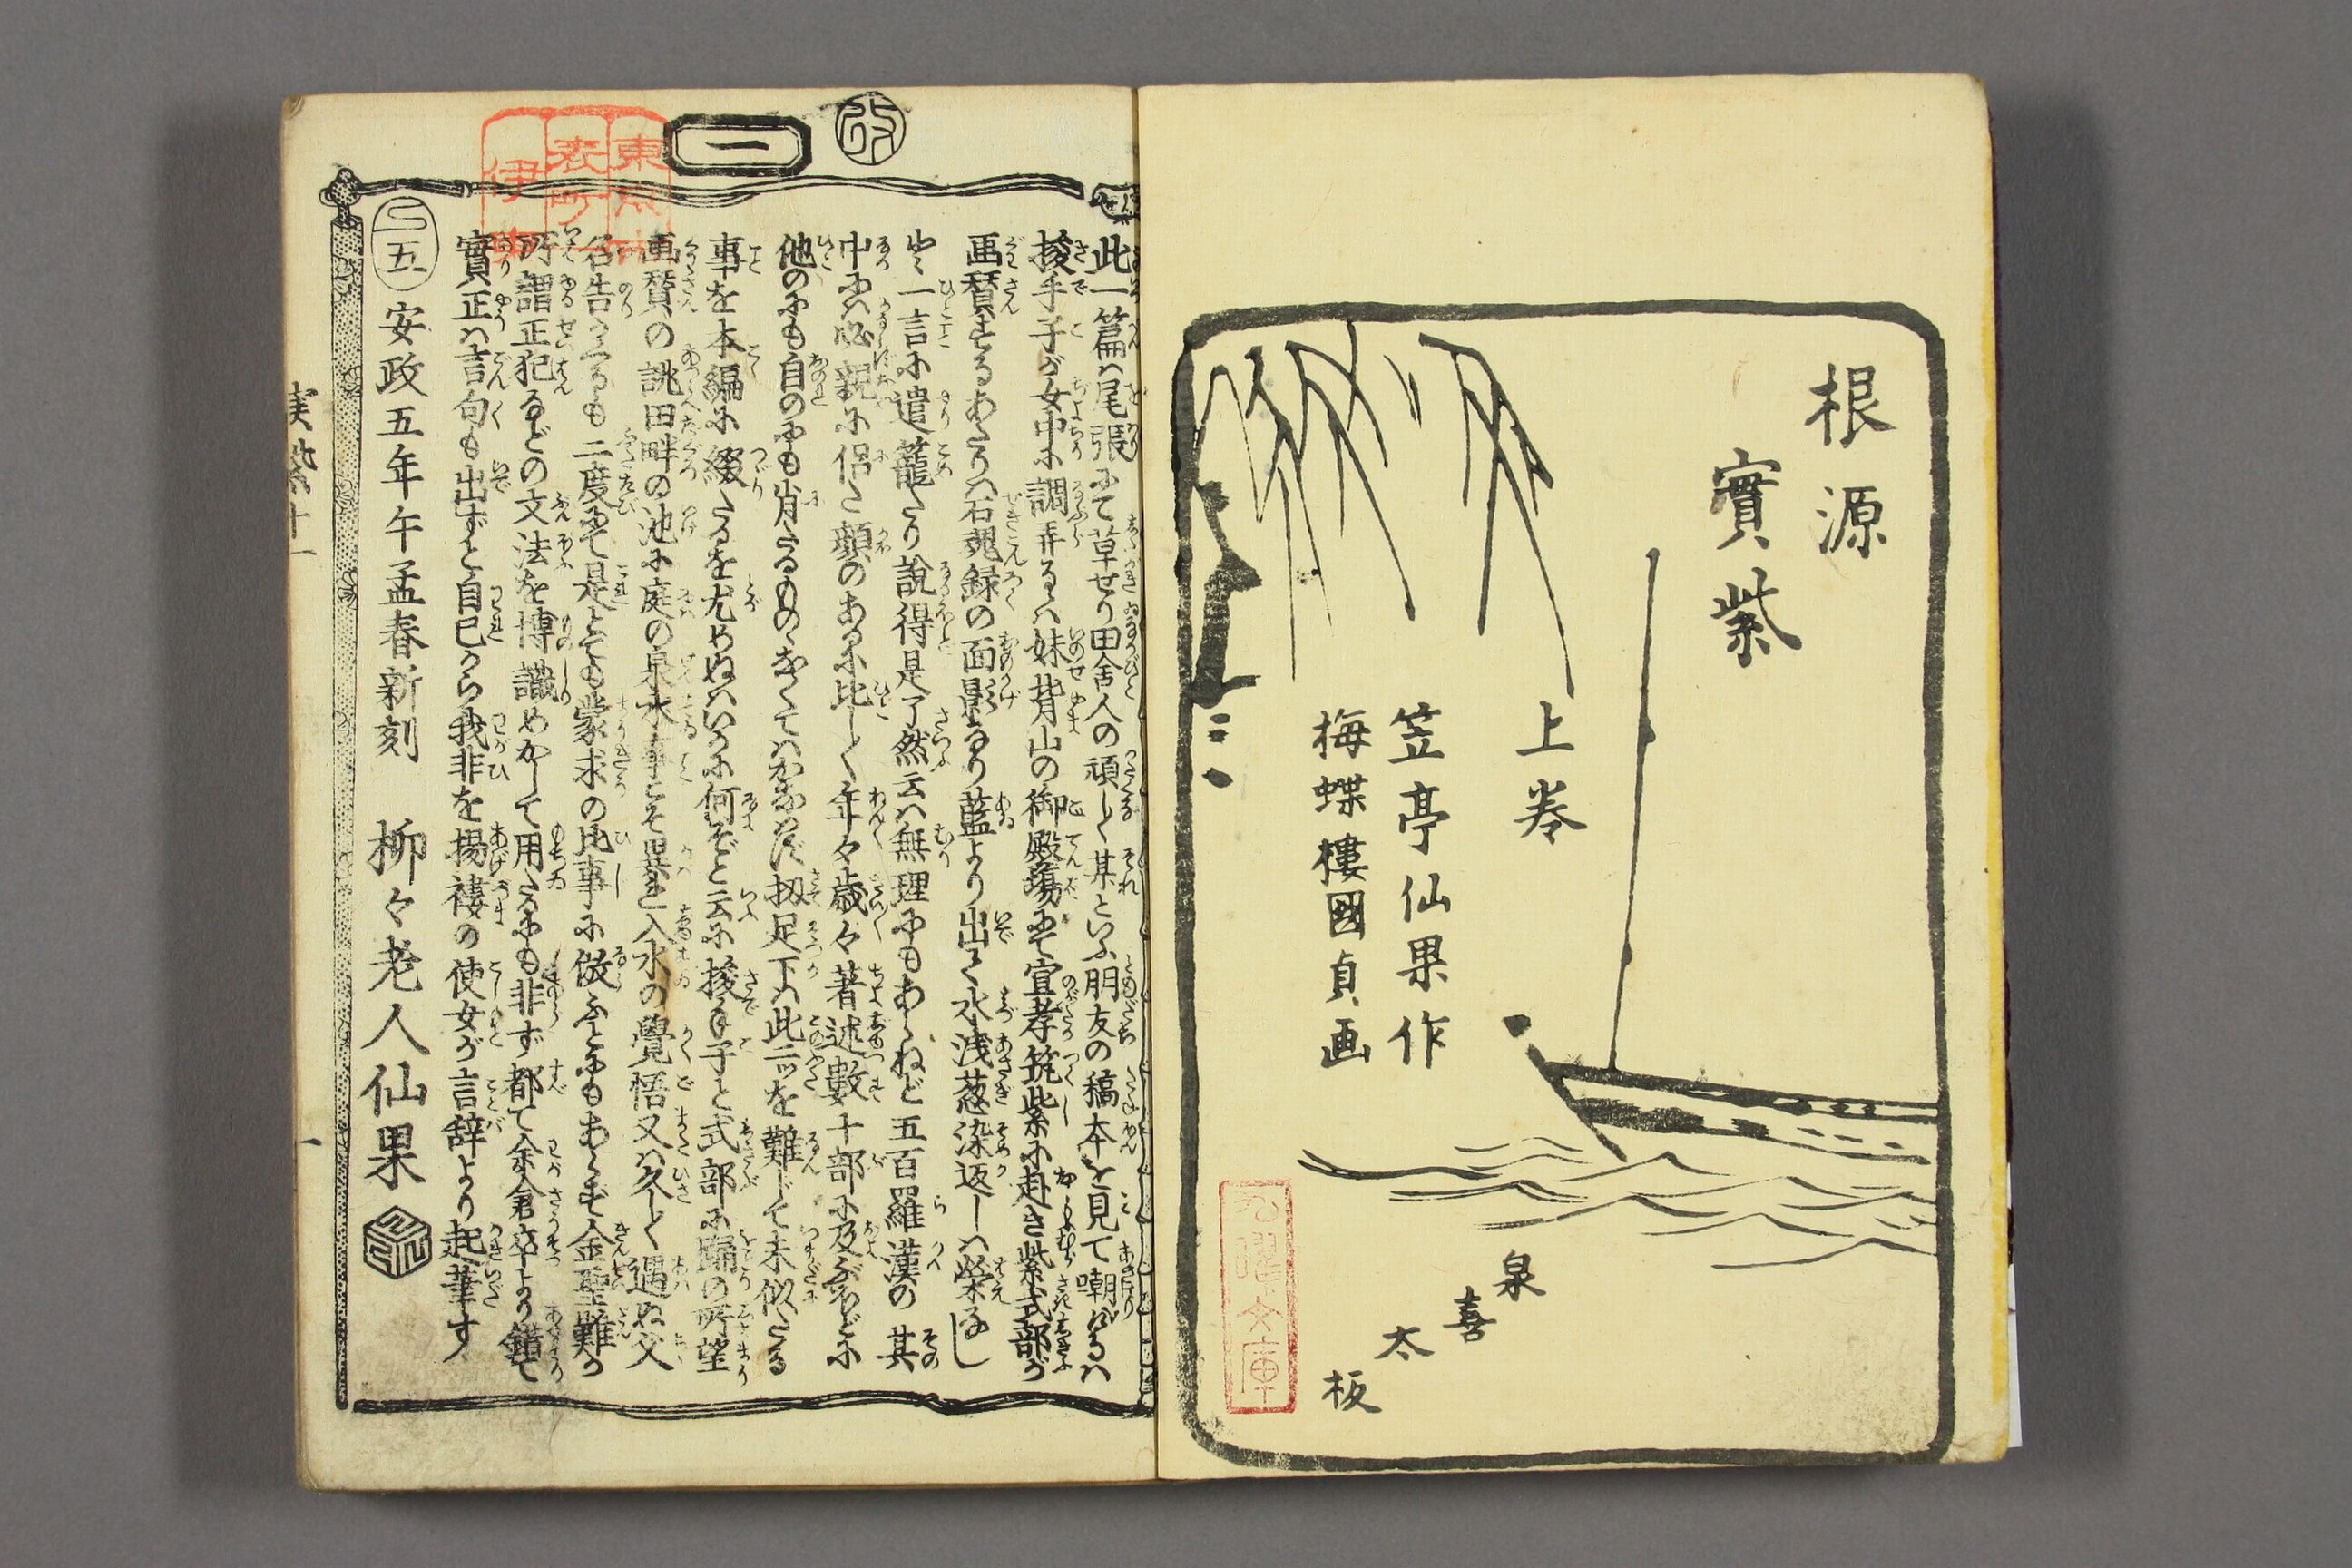 根源
實紫
上巻
笠亭仙果作
梅蝶樓國貞画
泉
喜
太
板
九曜文庫
改
一
此一篇ハ尾張にて草せり田舎人の頑しく某といふ朋友の稿本を見て嘲けるハ
捘手子が女中に調弄るハ妹背山の御殿場にて宣孝筑紫に赴き紫式部が
画賛せるあたりハ石魂録の面影なり藍より出て水浅葱染返しハ栄なし
と一言に遣篭たり説得是了然云ハ無理にもあらねど五百羅漢の其
中にハ必親に侶た顔のあるに比しく年々歳々著述數十部に及ぶほどに
他のにも自のにも肖たるものゝなくてハかなはず扨足下ハ此二ツを難じて未似たる
事を本編に綴たるを尤めぬハいかに何ぞと云に捘手子と式部に踊の所望
画賛の誂田畔の池に庭の泉水事こそ異と入水の覺悟又ハ久しく遇ぬ父
名告へるも二度にて是とても蒙求の比事に倣ふとにもあらず金聖難か
所謂正犯などの文法を博識めかして用たるにも非ず都て余倉卒より錯て
實正ハ言句も出ずと自己から我非を揚褸の使女が言辞より起筆す
二五
安政五年午孟春新刻　柳々老人仙果
実紫十一
一